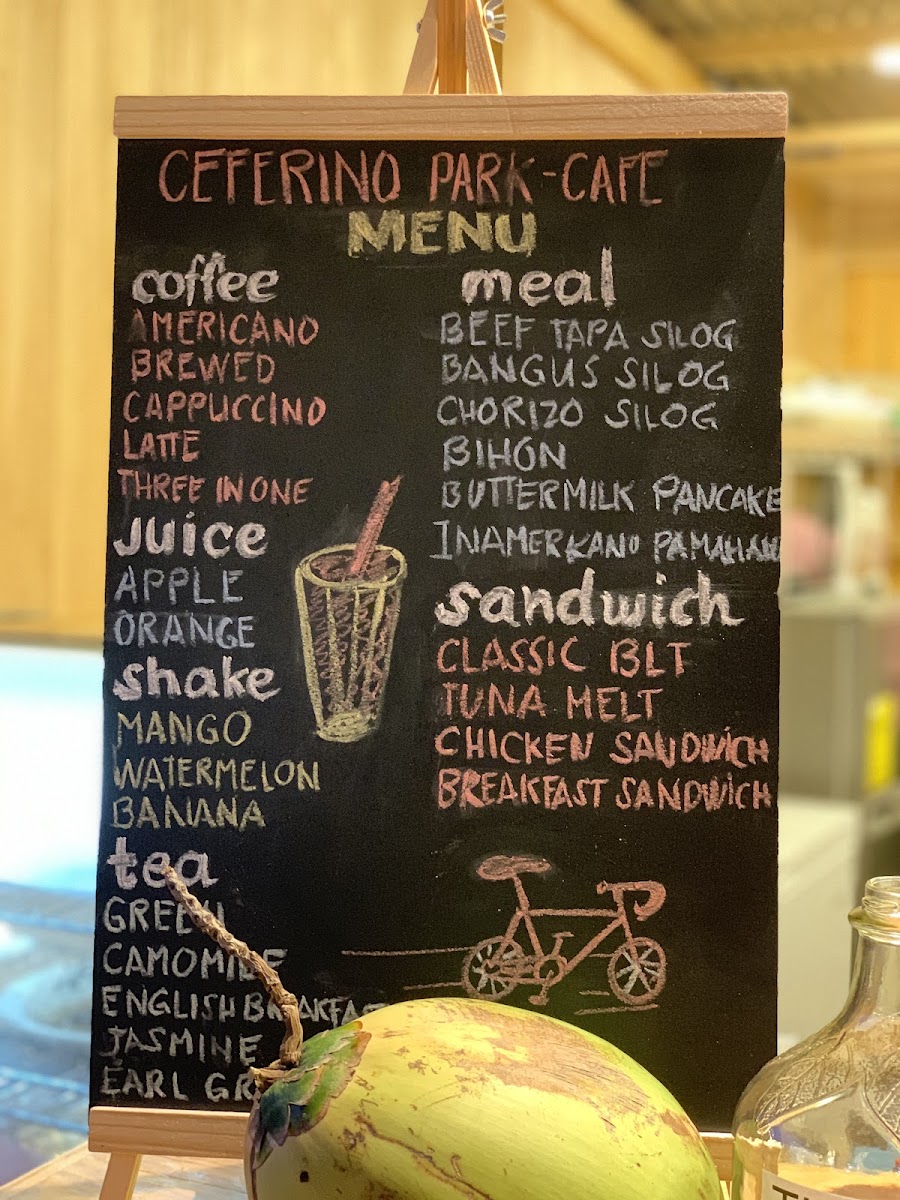 CEFERINO PARK-CAFE
MENU
coffee
AMERICANO
BREWED
CAPPUCCINO
LATTE
THREE IN ONE
juice
APPLE
ORANGE
shake
MANGO
WATERMELON
BANANA
tea
GREEN
CAMOMILE
ENGLISH BREAKFAS
JASMINE
EARL GR
meal
BEEF TAPA SILOG
BANGUS SILOG
CHORIZO SILOG
BIHON
BUTTERMILK PANCAKE
INAMERKANO PAMAHAW
sandwich
CLASSIC BLT
TUNA MELT
CHICKEN SANDWICH
BREAKFAST SANDWICH